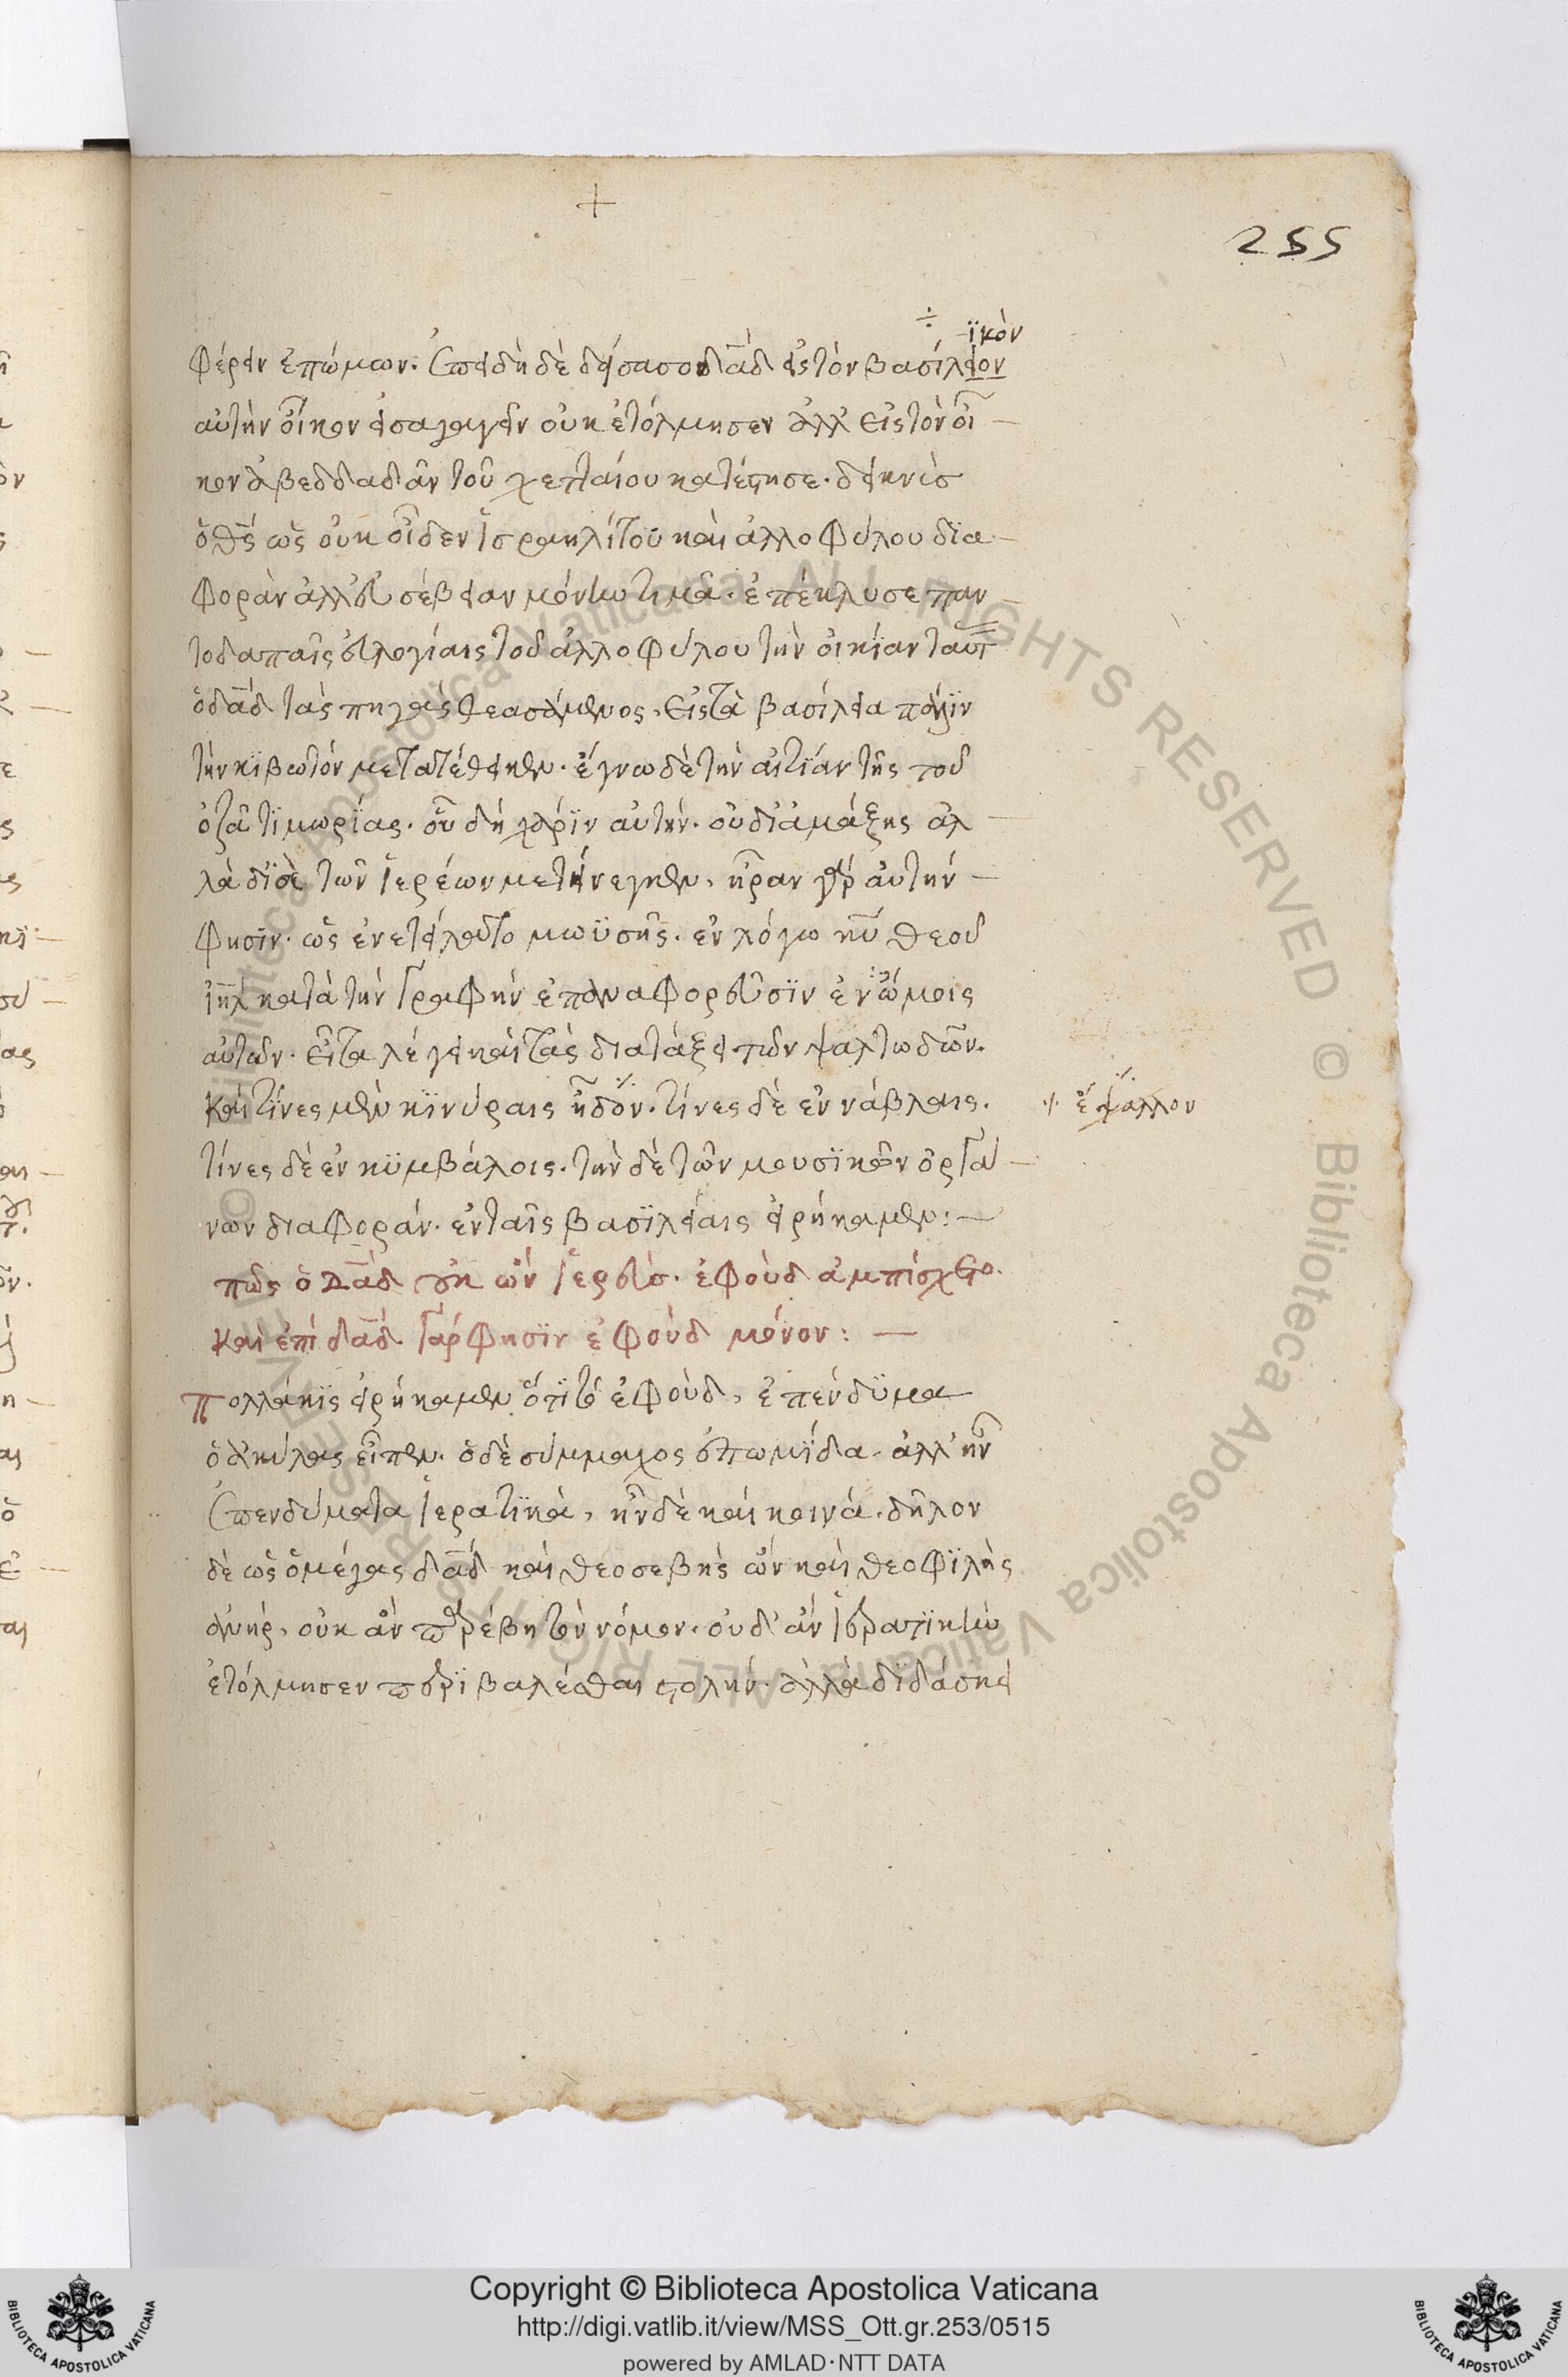 +
255
÷ ϊκὸν
φέρειν ἐπώμων. ἐπειδὴ δὲ δείσας ὁ δᾱδ εἰς τὸν βασίλειον
αὐτὴν οἶκον εἰσαγαγεῖν οὐκ ἐτόλμησεν ἀλλ' εἰς τὸν οἶ –
κον ἀβεδδαδὰν τοῦ χετταίου κατέστησε. δεικνὺς
ὁ θς̄ ὡς οὐκ οἶδεν ἰσραηλίτου καὶ ἀλλοφύλου δϊα –
φορὰν ἀλλ' εὐσέβειαν μόνην τιμᾶ. ἐπέκλυσε παν –
τοδαπαῖς εὐλογίαις τοῦ ἀλλοφύλου τὴν οἰκίαν ταυτ
ὁ δᾱδ τὰς πηγὰς θεασάμενος, εἰς τὰ βασίλεια πάλϊν
τὴν κϊβωτὸν μετατέθεικεν. ἔγνω δὲ τὴν αἰτίαν τῆς τοῦ
ὀζᾶ τϊμωρίας. οὗ δὴ χάρϊν αὐτὴν. οὐ δι' ἁμάξης ἀλ –
λὰ δϊὰ τῶν ἱερέων μετήνεγκεν, ἦραν γὰρ αὐτὴν –
φησϊν. ὡς ἐνετείλατο μωϋσῆς. ἐν λόγω κῡ θεοῦ
ιη̄λ κατὰ τὴν γραφὴν ἐπαναφορεῦσϊν ἐν ὤμοις
αὐτῶν. εἶτα λέγει καὶ τὰς διατάξει τῶν ψαλτωδῶν.
καὶ τίνες μὲν κϊνύραις ἦδον. τίνες δὲ ἐν νάβλαις. ·/· ἔψαλλον
τίνες δὲ ἐν κϋμβάλοις. τὴν δὲ τῶν μουσϊκῶν ὀργά –
νων διαφορὰν. ἐν ταῖς βασϊλείαις εἰρήκαμεν: –
πῶς ὁ δᾱδ οὐκ ὢν ἱερεὺς. ἐφοὺδ ἀμπίσχετο.
καὶ ἐπὶ δᾱδ γάρ φησϊν ἐφοὺδ μόνον: –
πολλάκϊς εἰρήκαμεν ὅτϊ τὸ ἐφοὺδ, ἐπένδϋμα
ὁ ἀκύλας εἶπεν. ὁ δὲ σύμμαχος ἐπωμίδα. ἀλλ' ἦν
ἐπενδύματα ἱερατϊκὰ, ἦν δὲ καὶ κοινά. δῆλον
δὲ ὡς ὁ μέγας δᾱδ καὶ θεοσεβὴς ὢν καὶ θεοφϊλὴς
ἀνὴρ. οὐκ ἂν παρέβη τὸν νόμον. οὐδ' ἂν ἱερατϊκὴν
ἐτόλμησεν περϊβαλέσθαι στολὴν. ἀλλὰ δϊδάσκει
Copyright © Biblioteca Apostolica Vaticana
http://digi.vatlib.it/view/MSS_Ott.gr.253/0515
powered by AMLAD·NTT DATA